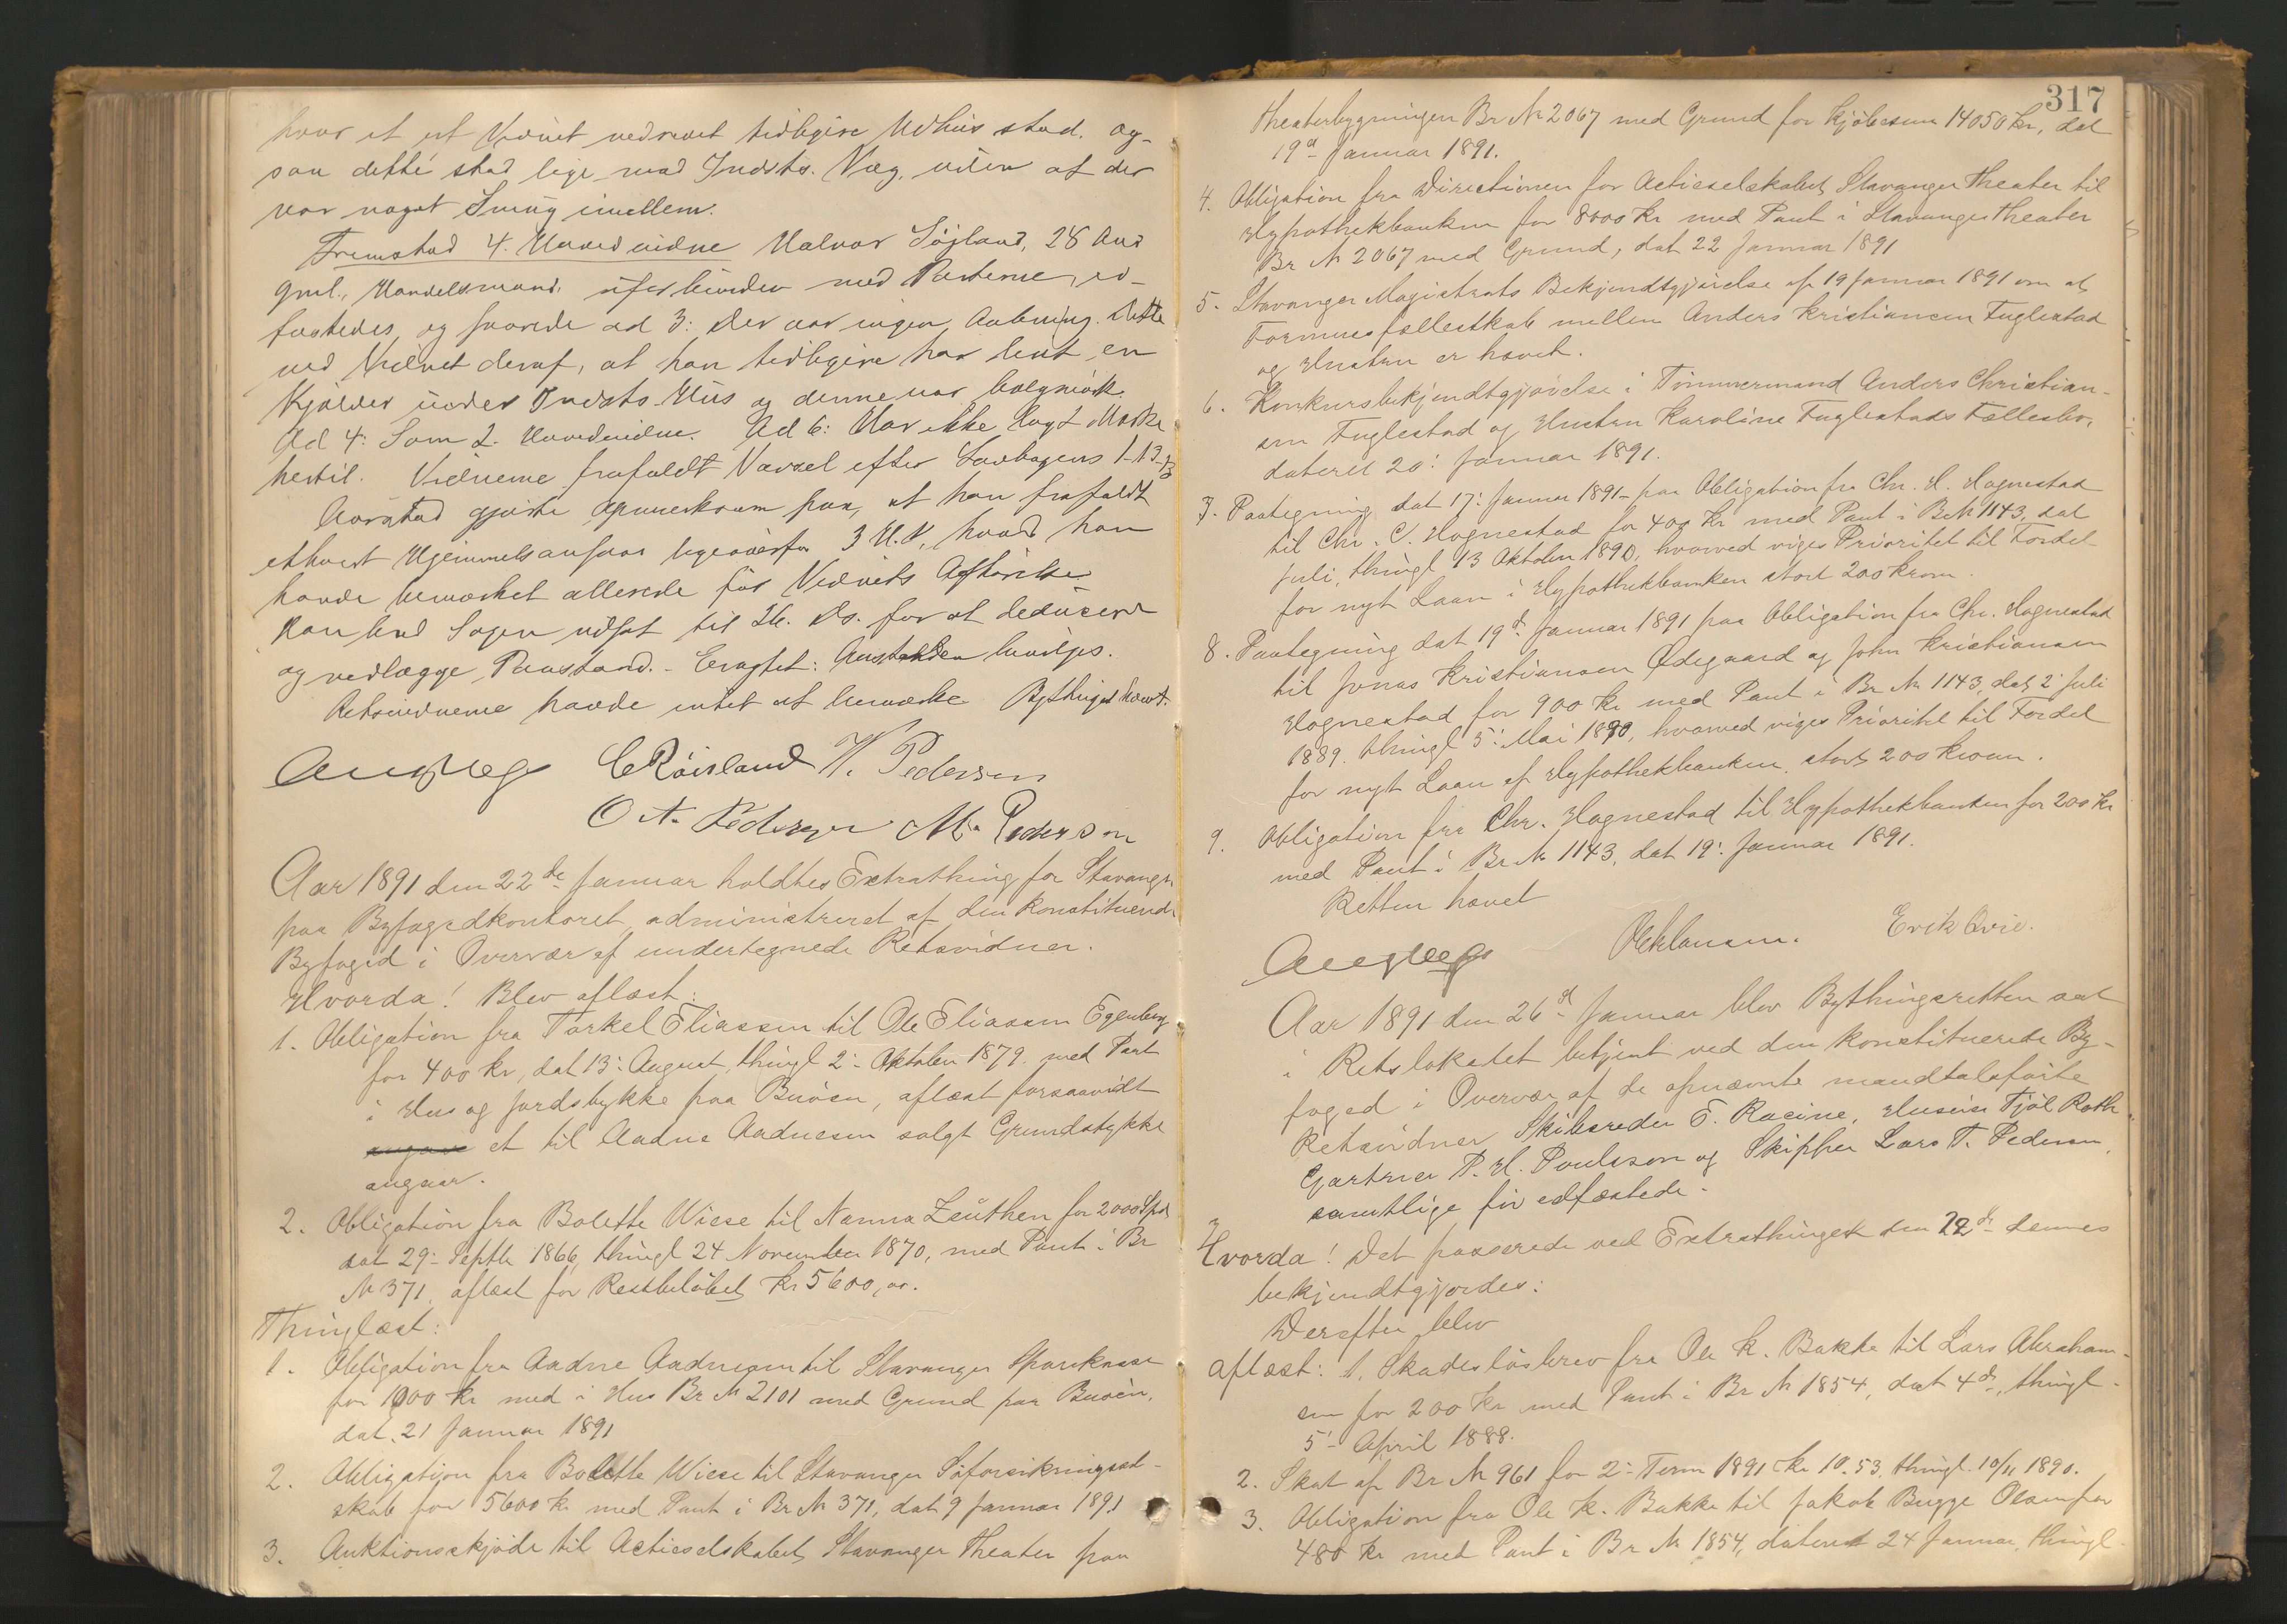 hvor et af Vidnet nedrevet tidligere Udhus stod. Og-
saa dette stod lige mod Indsts. Væg, uden at der
var noget Smug imellem.
Fremstod 4. Hovedvidne Halvor Søyland, 28 Aar
gml., Handelsmand, uforbunden med Parterne, ed-
fæstedes og svarede ad 3: Der var ingen Aabning. Dette
ved Vidnet deraf, at han tidligere har leiet en
Kjælder under Indsts Hus og denne var bælgmørk.
Ad 4: Som 2. Hovedvidne. Ad 6: Har ikke lagt Mærke
hertil. Vidnerne frafaldt Varsel efter Lovbogens 1-13-
Aarstad gjorde opmerksom paa, at han frafaldt
ethvert Hjemmelsansvar ligeoverfor 3 H.V., hvad han
havde bemærket allerede før Vidnets Afhørelse
Han bad Sagen udsat til 26. ds. for at deducere
og vedlægge Paastand. - Eragtet: Anstanden bevilges.
Retsvidnerne havde intet at bemærke Bythinget hævet.
C Røisland W. Pedersen
O. A. Pedersen M. Pedersen
Aar 1891 den 22de Januar holdtes Extrathing for Stavanger
paa Byfogedkontoret, administreret af den konstituerede
Byfoged i Overvær af undertegnede Retsvidner.
Hvorda! Blev aflæst:
1. Obligation fra Torkel Eliassen til Ole Eliassen Egenberg
for 400 kr, dat 13: August, thingl 2: Oktober 1879 med Pant
i Hus og Jordstykke paa Buøen, aflæst forsaavidt
angaar et til Aadne Aadnesen solgt Grundstykke
angaar.
2. Obligation fra Bolette Wiese til Nanna Zeuthen for 2000 Spd
dat 29: Septbr 1866, thingl 24 November 1870, med Pant i Br
№ 371, aflæst for Restbeløbet kr 5600,00.
Thinglæst:
1. Obligation fra Aadne Aadnesen til Stavanger Sparekasse
for 1000 kr med i Hus Br № 2101 med Grund paa Buøen,
dat. 21 Januar 1891
2. Obligation fra Bolette Wiese til Stavanger Søforsikringssel-
skab for 5600 kr med Pant i Br № 371, dat 9 Januar 1891
3. Auktionsskjøde til Actieselskabet Stavanger Theater paa
317
Theaterbygningen Br № 2067 med Grund for Kjøbesum 14050 kr, dat
19d Januar 1891.
4. Obligation fra Directionen for Actieselskabet Stavanger Theater til
Hypothekbanken for 8000 kr med Pant i Stavanger Theater
Br № 2067 med Grund, dat 22 Januar 1891
5. Stavanger Magistrats Bekjendtgjørelse af 19 Januar 1891 om at
Formuesfællesskab mellem Anders Kristiansen Fuglestad
og Hustru er hævet.
6. Konkursbekjendtgjørelse i Tømmermand Anders Christian-
sen Fuglestad og Hustru Karoline Fuglestads Fællesbo,
dateret 20: Januar 1891.
7. Paategning dat 17: Januar 1891 paa Obligation fra Chr. H. Hognestad
til Chr. C. Hognestad for 400 kr med Pant i Br № 1143, dat
Juli, thingl 13 Oktober 1890, hvorved viges Prioritet til Fordel
for nyt Laan i Hypothekbanken stort 200 kroner.
8. Paategning dat 19d Januar 1891 paa Obligation fra Chr. Hognestad
til Jonas Kristiansen Ødegaard og John Kristiansen
Hognestad for 900 kr med Pant i Br № 1143, dat 2 Juli
1889, thingl 5: Mai 1890, hvorved viges Prioritet til Fordel
for nyt Laan af Hypothekbanken, stort 200 kroner.
9. Obligation fra Chr. Hognestad til Hypothekbanken for 200 kr
med Pant i Br № 1143, dat 19: Januar 1891.
Retten hævet
Erik Qvie.
Aar 1891 den 26d Januar blev Bythingsretten sat
i Retslokalet betjent ved den konstituerede By-
foged i Overvær af de opnævnte mandtalsførte
Retsvidner Skibsreder E. Racine, Huseier Tjøl Roth
Gartner P. H. Poulsson og Skipper Lars T. Pedersen,
samtlige før edfæstede.
Hvorda! Det passerede ved Extrathinget den 22de dennes
bekjendtgjordes:
Derefter blev
aflæst: 1. Skadesløsbrev fra Ole K. Bakke til Lars Abraham-
sen for 200 kr med Pant i Br № 1854, dat 4de, thingl
5: April 1888.
2. Skat af Br № 961 for 2: Term 1891 kr 10.53, thingl. 10/11 1890.
3. Obligation fra Ole K. Bakke til Jakob Bugge Olsen for
480 kr med Pant i Br № 1854, dateret 24 Januar, thingl.